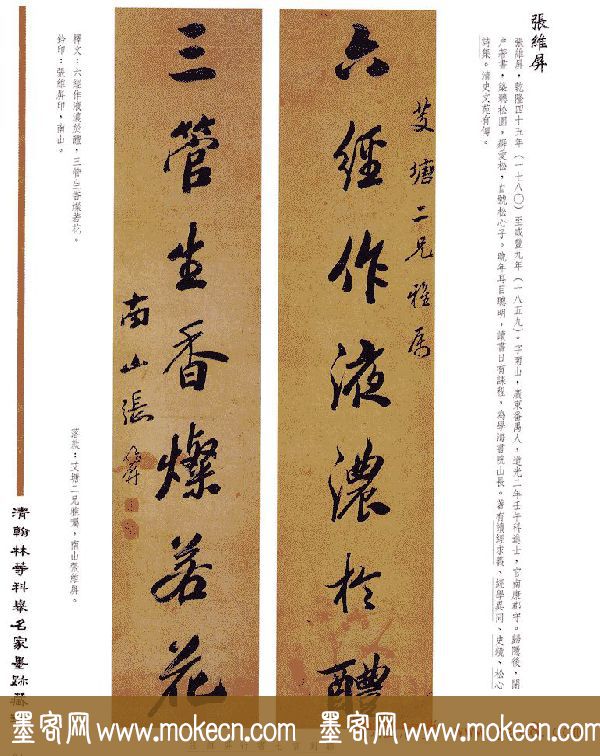 張維屏
張維屏，乾隆四十五年（一七八〇）至咸豐九年（一八五九）。字南山，廣東番禺人，道光二年壬午科進士，官南康郡守。歸隱後，閉
戶著書，築聽松園，癖愛松，自號松心子。晚年耳目聰明，讀書日有課程，為學海書院山長。著有
詩集。清史文苑有傳。
艾塘二兄雅属
六經作液濃於醴
三管生香燦若花
南山張維屏
釋文：六經作液濃於醴，三管生香燦若花。
鈐印：張維屏印，南山。
落款：艾塘二兄雅囑，南山張維屏。
清翰林等科舉名家墨跡
墨客网 www.mokecn.com 墨客网 www.mokecn.com